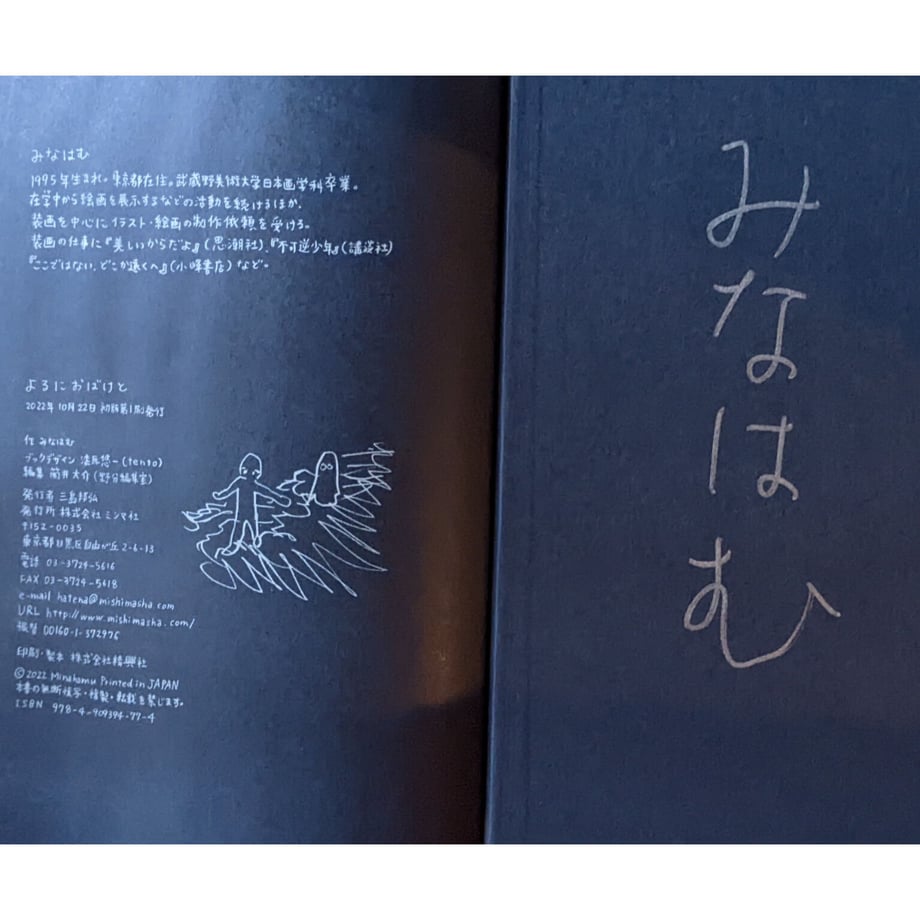 みなはむ
1995年生まれ。東京都在住。武蔵野美術大学日本画学科卒業。
在学中から絵画を展示するなどの活動を続けるほか、
装画を中心にイラスト・絵画の制作依頼を受ける。
装画の仕事に『美しいからだよ』(思潮社)、『不可逆少年』(講談社)
『ここではない、どこか遠くへ』(小峰書店)など。
よるにおばけと
2022年10月22日 初版第1刷発行
作 みなはむ
ブックデザイン 漆原悠一(tento)
編集 筒井大介(野分編集室)
発行者 三島邦弘
発行所 株式会社 ミシマ社
〒152-0035
東京都目黒区自由が丘2-6-13
電話 03-3724-5616
FAX 03-3724-5618
e-mail hatena@mishimasha.com
URL http://www.mishimasha.com/
振替 00160-1-372976
印刷・製本 株式会社精興社
©2022 Minahamu Printed in JAPAN
本書の無断複写・複製・転載を禁じます。
ISBN 978-4-909394-77-4
みなはむ